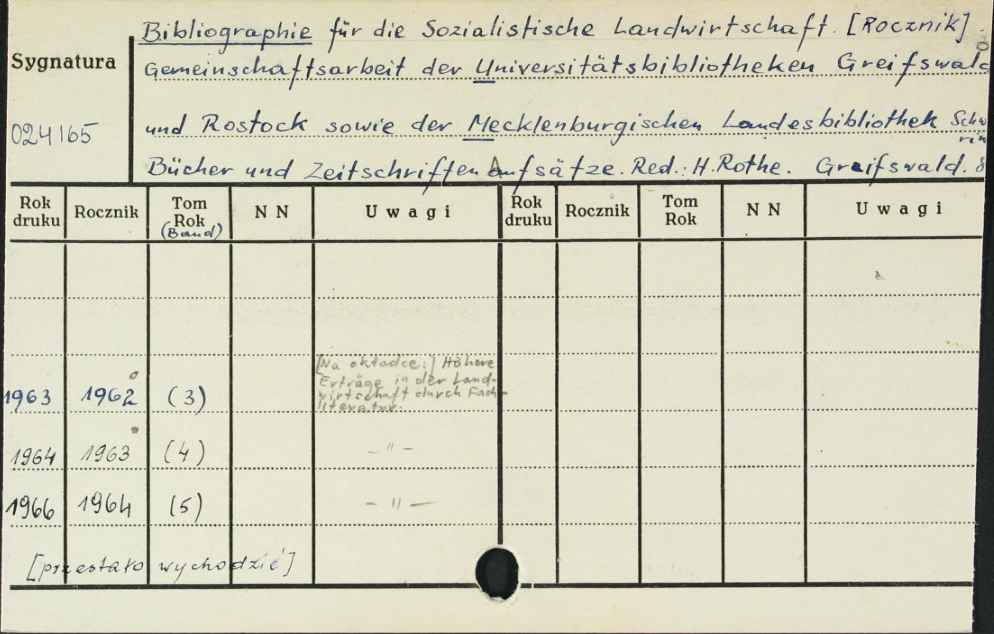 Bibliographie für die Sozialistische Landwirtschaft. [Rocznik].
Sygnatura
Gemeinschaftsarbeit der Universitätsbibliotheken Greifswald
024165
und Rostock sowie der Mecklenburgischen Landesbibliothek Schw
rin
Bücher und Zeitschriften Aufsätze. Red.: H. Rothe. Greifswald. 8
Rok druku Rocznik Tom Rok (Band) N N Uwagi Rok druku Rocznik Tom Rok N N Uwagi
[Na okładce:] Höhere
Erträge in der Land-
wirtschaft durch Fach-
literatur.
1963 1962 (3)
1964 1963 (4) – " –
1966 1964 (5) – " –
[przestało wychodzić]